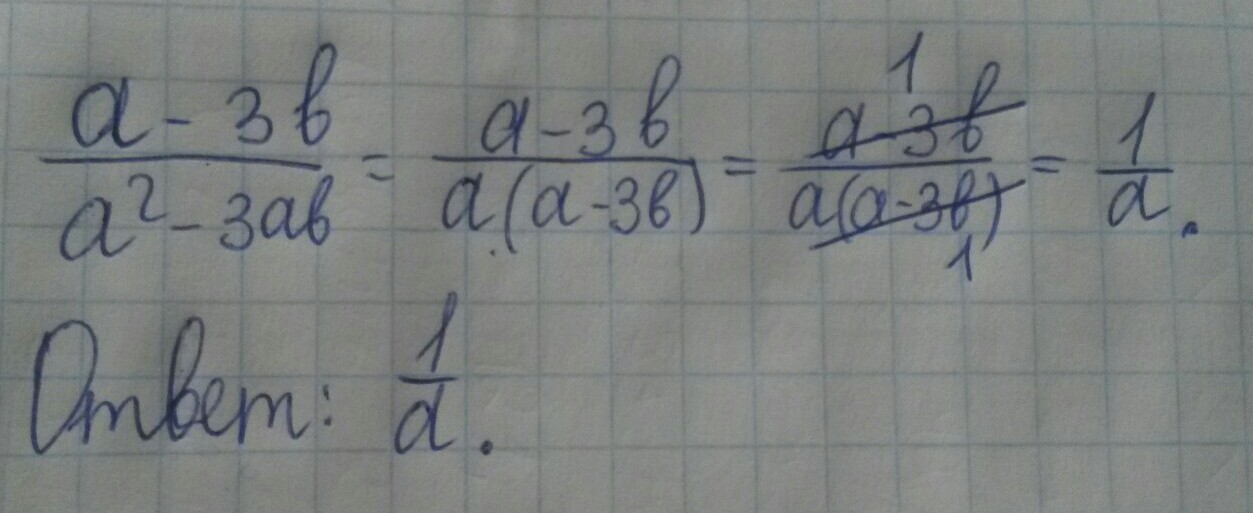 (a - 3b)/(a² - 3ab) = (a - 3b)/(a(a - 3b)) = (a - 3b)/(a(a - 3b)) = 1/a.
Ответ: 1/a.